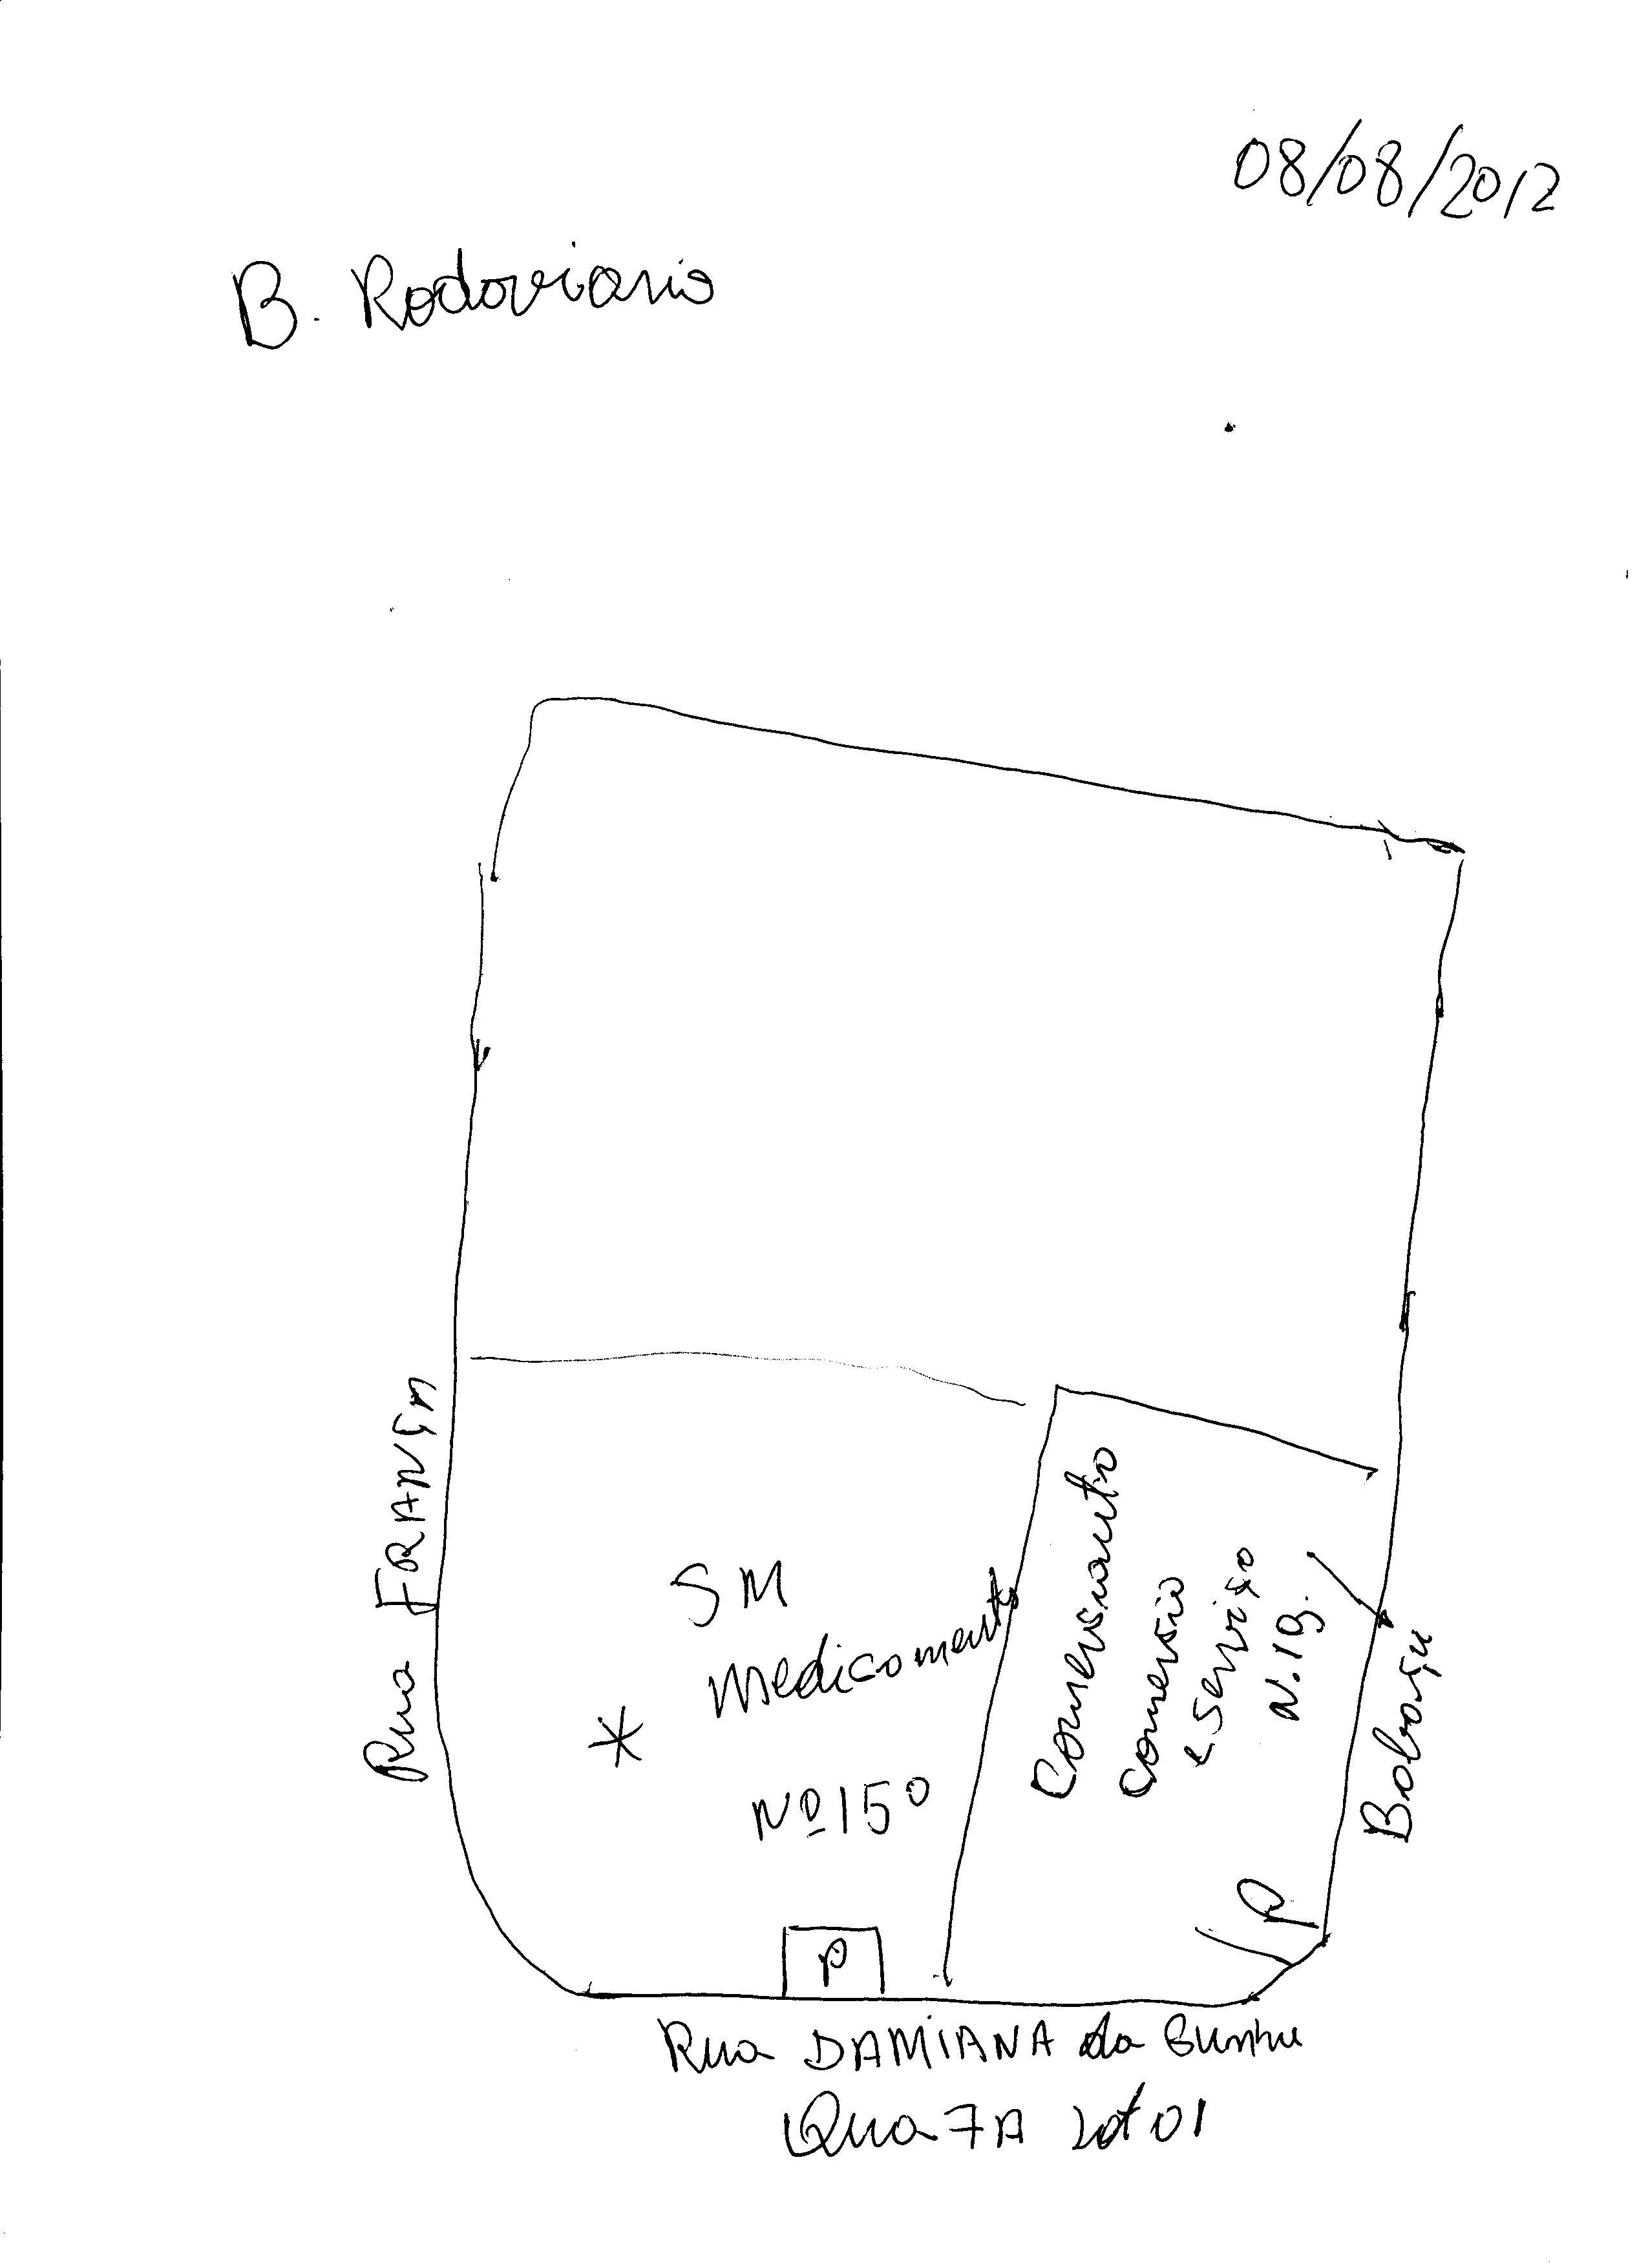 08/08/2012
B. Rodoviario
Rua FRANÇA
SM
medicamento
Nº 150
*
comercio
e serviço
N. 19.
P
P
Rua DAMIANA da Cunha
Qua 7A Lot 01